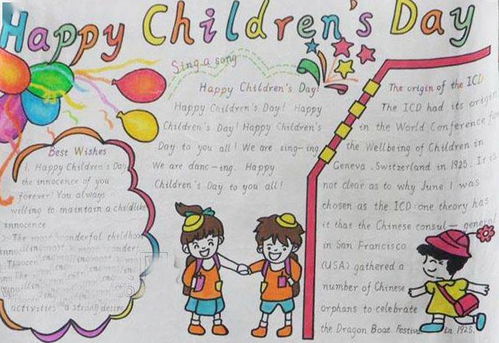 Happy Children's Day
Sing a song
Happy Children's Day!
Happy Children's Day! Happy
Children's Day! Happy Children's
Day to you all! We are sing-ing
We are danc-ing. Happy
Children's Day to you all!
Best Wishes
1. Happy Children's Day
the innocence of you
forever! You always
willing to maintain a childlike
innocence
2. The most wonderful childhood
activities a strong desire
The origin of the ICD
The ICD had its origin
in the World Conference for
the Wellbeing of Children in
Geneva, Switzerland in 1925. It is
not clear as to why June 1 was
chosen as the ICD: one theory has
it that the Chinese consul- general
in San Francisco
(USA) gathered a
number of Chinese
orphans to celebrate
the Dragon Boat Festival in 1925.